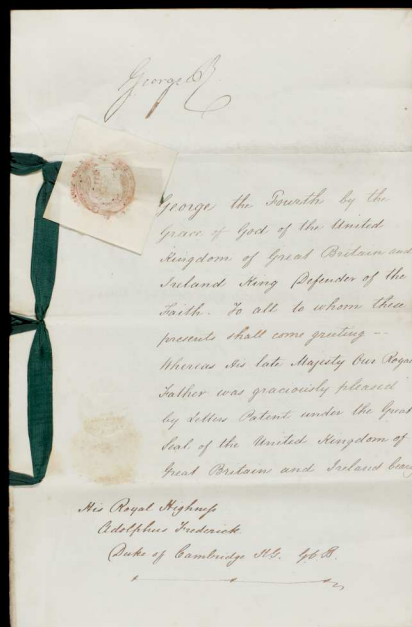 George R
George the Fourth by the
Grace of God of the United
Kingdom of Great Britain and
Ireland King Defender of the
Faith. To all to whom these
presents shall come greeting --
Whereas His late Majesty Our Royal
Father was graciously pleased
by Letters Patent under the Great
Seal of the United Kingdom of
Great Britain and Ireland bearg
His Royal Highness
Adolphus Frederick
Duke of Cambridge K.G. G.C.B.